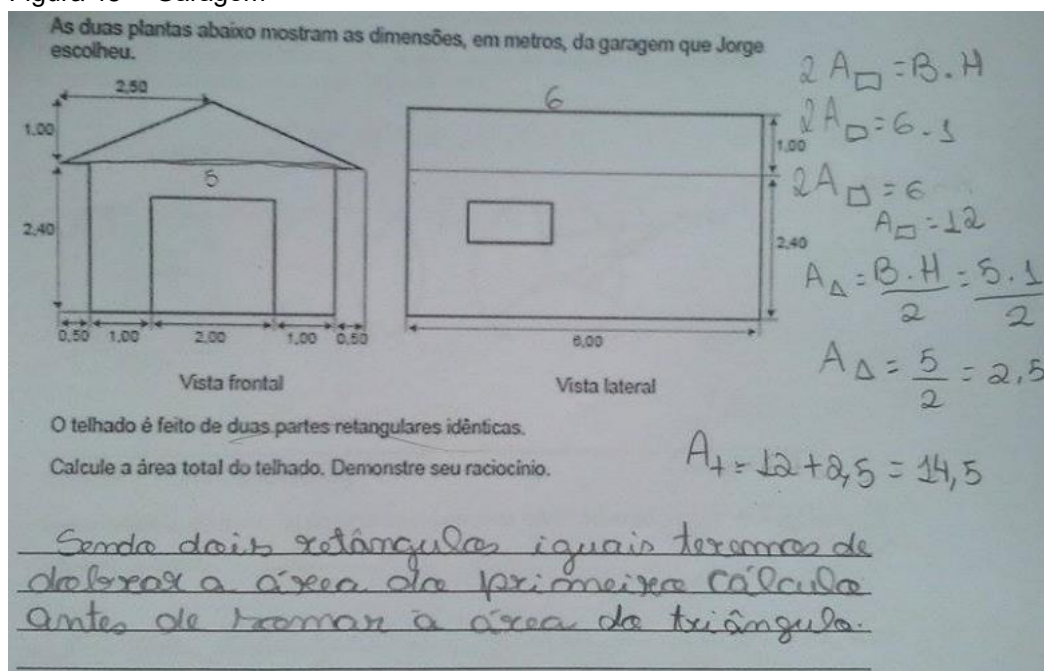 Figura 13 – Garagem
As duas plantas abaixo mostram as dimensões, em metros, da garagem que Jorge
escolheu.
2,50
1,00
5
2,40
0,50 1,00 2,00 1,00 0,50
Vista frontal
6
1,00
2,40
6,00
Vista lateral
O telhado é feito de duas partes retangulares idênticas.
Calcule a área total do telhado. Demonstre seu raciocínio.
2 A▭ = B . H
2A▭ = 6 . 1
2A▭ = 6
A▭ = 12
A△ = B . H / 2 = 5 . 1 / 2
A△ = 5 / 2 = 2,5
A+ = 12 + 2,5 = 14,5
Sendo dois retângulos iguais teremos de
dobrar a área do primeiro cálculo
antes de somar a área do triângulo.